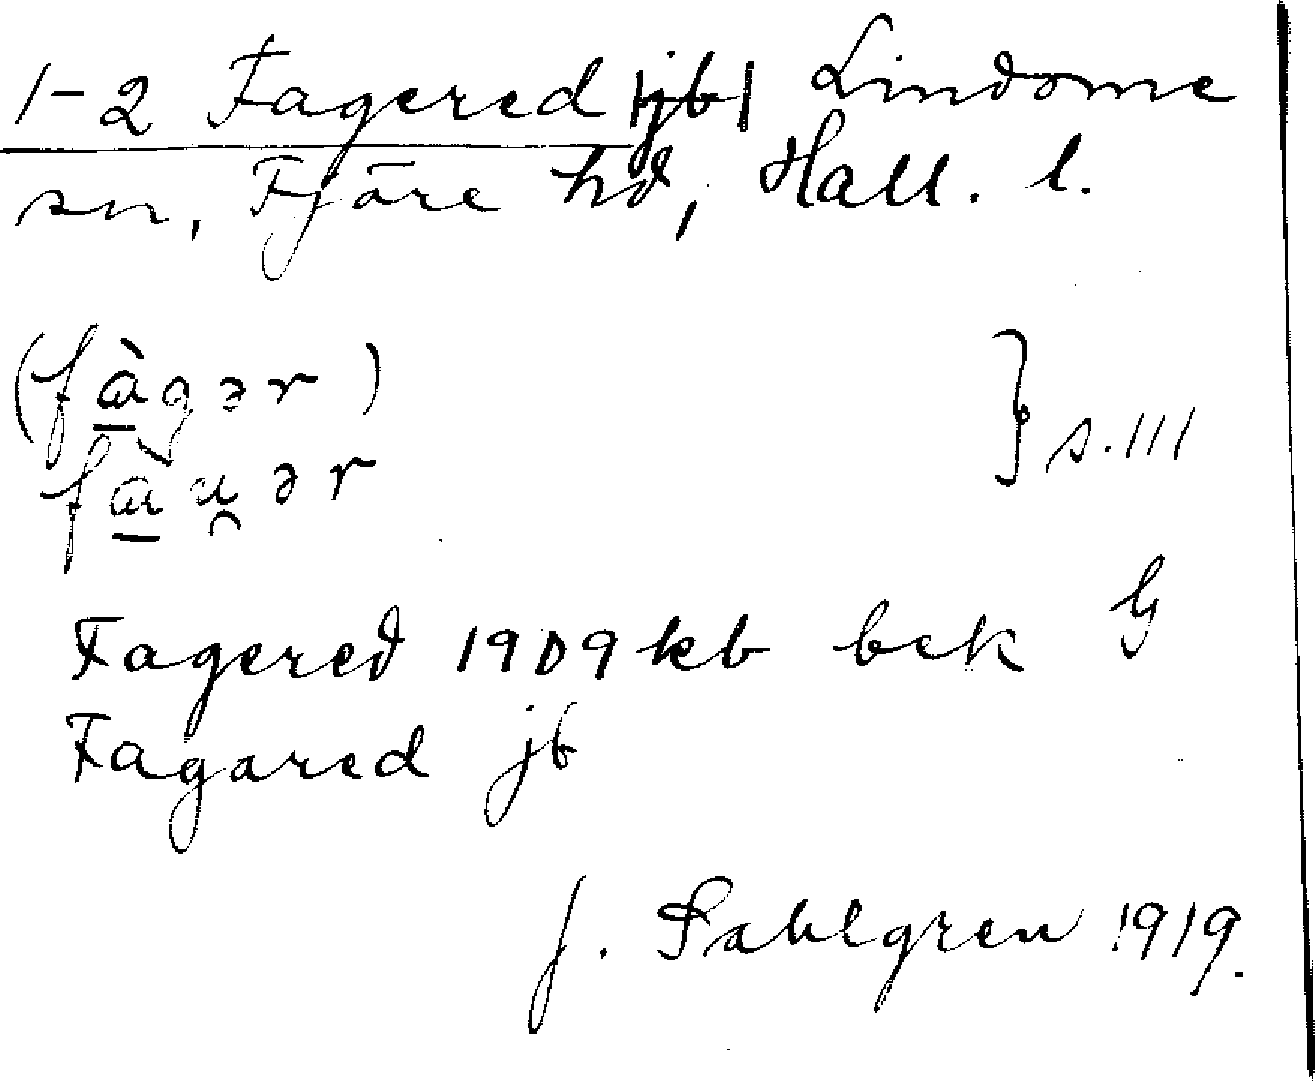 1-2 Fagered |jb| Lindome
sn, Fjäre hd, Hall. l.
(fàgər)
fau̯ər } s. 111
Fagered 1909 kb bek G
Fagared jb
J. Sahlgren 1919.